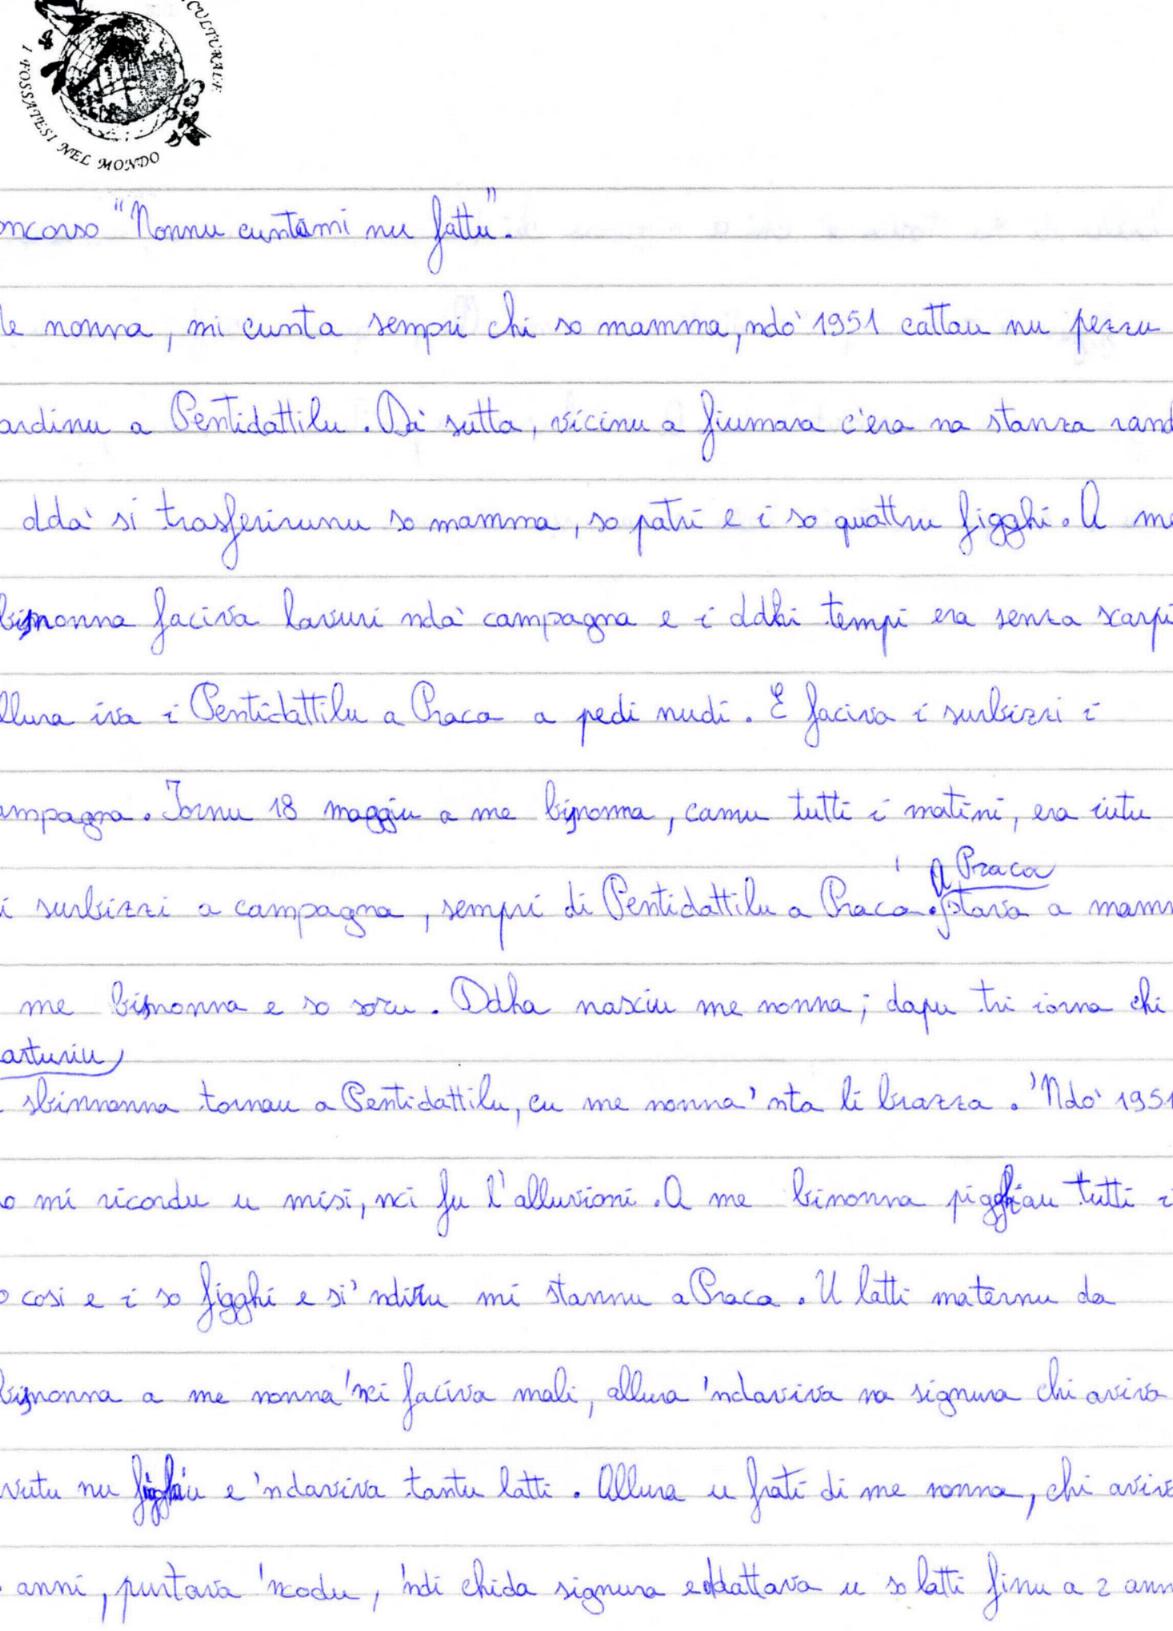 CULTURALE
I FOSSATESI NEL MONDO
oncorso "Nonnu cuntami nu fattu".
le nonna, mi cunta sempri chi so mamma, ndo' 1951 cattau nu pezzu
ardinu a Pentidattilu. Dà sutta, vicinu a fiumara c'era na stanza rand
dda' si trasferirunu so mamma, so patri e i so quattru figghi. A me
bisnonna faciva lavuri nda' campagna e i ddhi tempi era senza scarpi
llura iva i Pentidattilu a Praca a pedi nudi. E faciva i surbizzi i
ampagna. Jornu 18 maggiu a me bisnonna, comu tutti i matini, era iutu
i surbizzi a campagna, sempri di Pentidattilu a Praca. A Praca stava a mamm
me bisnonna e so soru. Ddha nasciu me nonna; dapu tri iorna chi
arturiu
sbinnonna tornau a Pentidattilu, cu me nonna 'nta li brazza. 'Ndo' 1951
o mi ricordu u misi, nci fu l'alluvioni. A me binonna pigghiau tutti i
o cosi e i so figghi e si 'ndiru mi stannu a Praca. U latti maternu da
bisnonna a me nonna 'nci faciva mali, allura 'ndaviva na signura chi aviva
vutu nu figghiu e 'ndaviva tantu latti. Allura u frati di me nonna, chi aviva
anni, purtava 'ncodu, 'ndi chida signura e ddattava u so latti finu a 2 ann